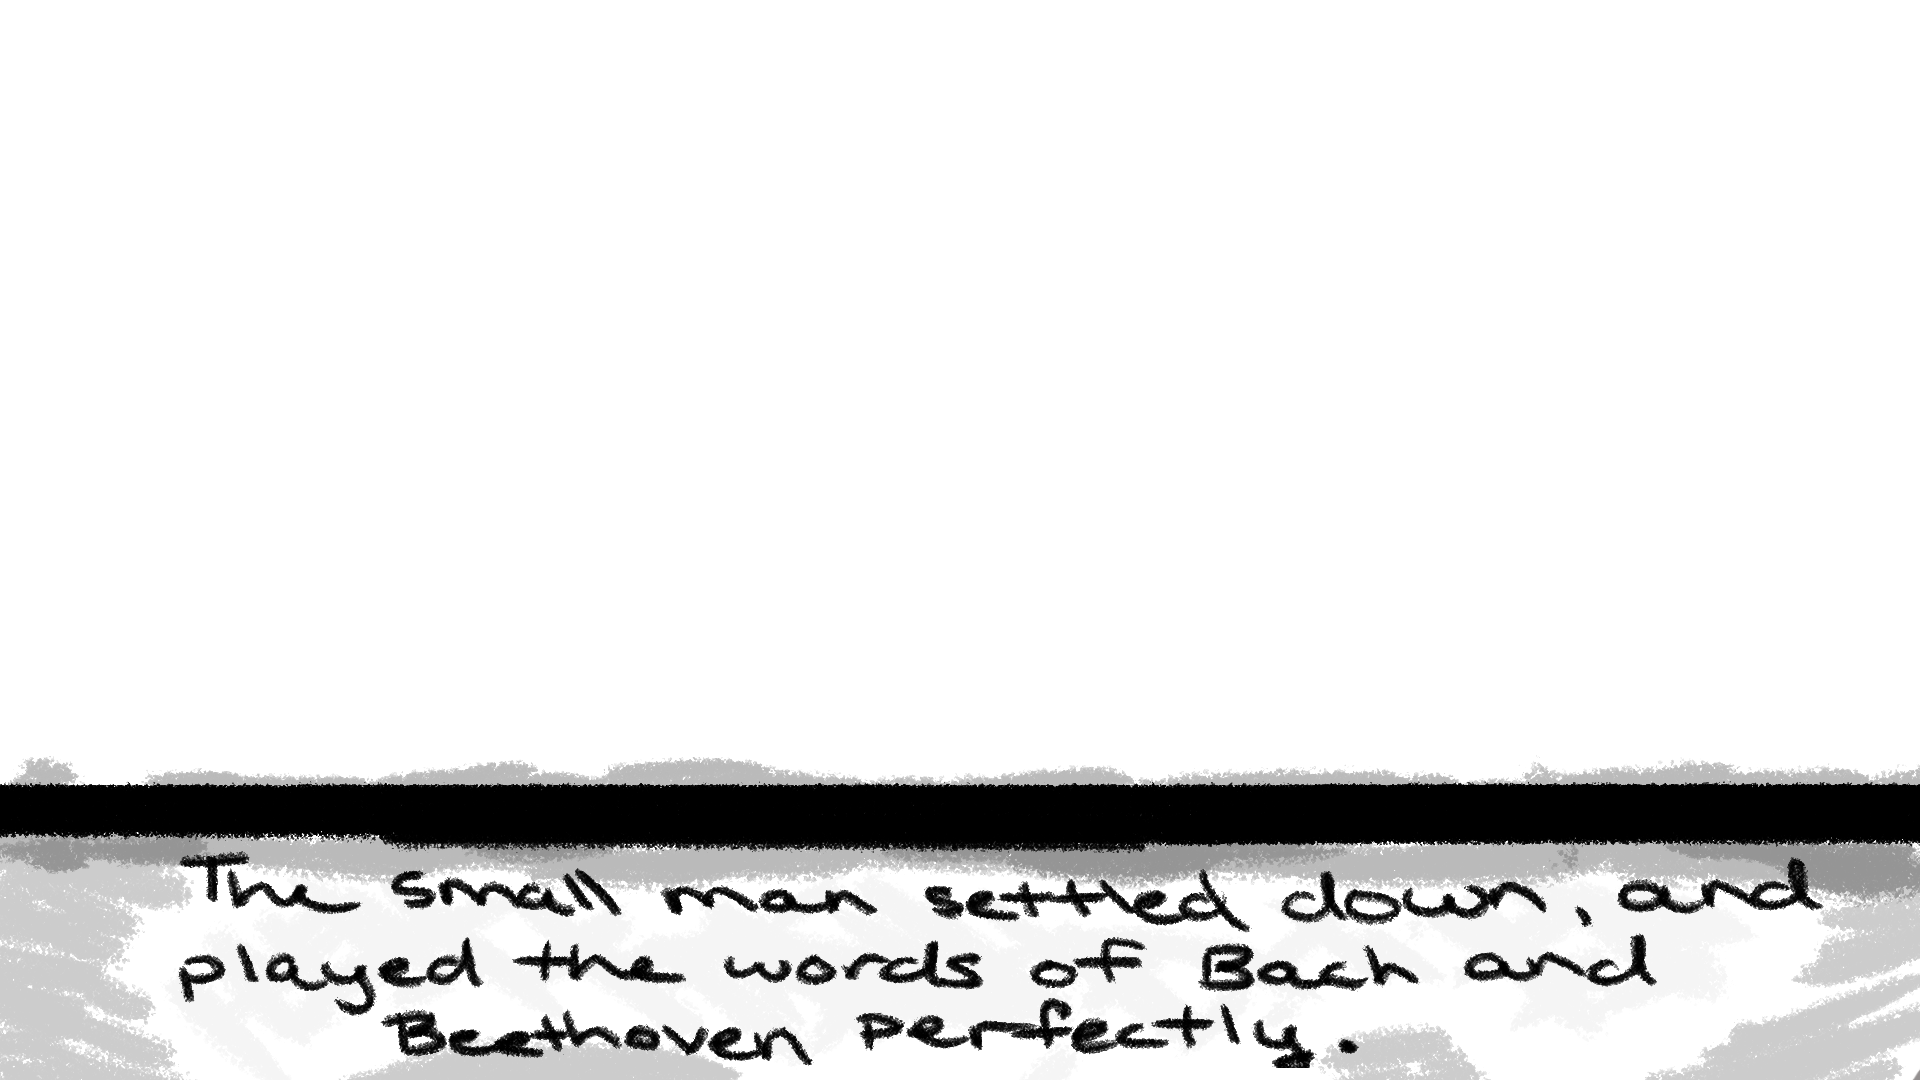 The small man settled down, and
played the words of Bach and
Beethoven perfectly.